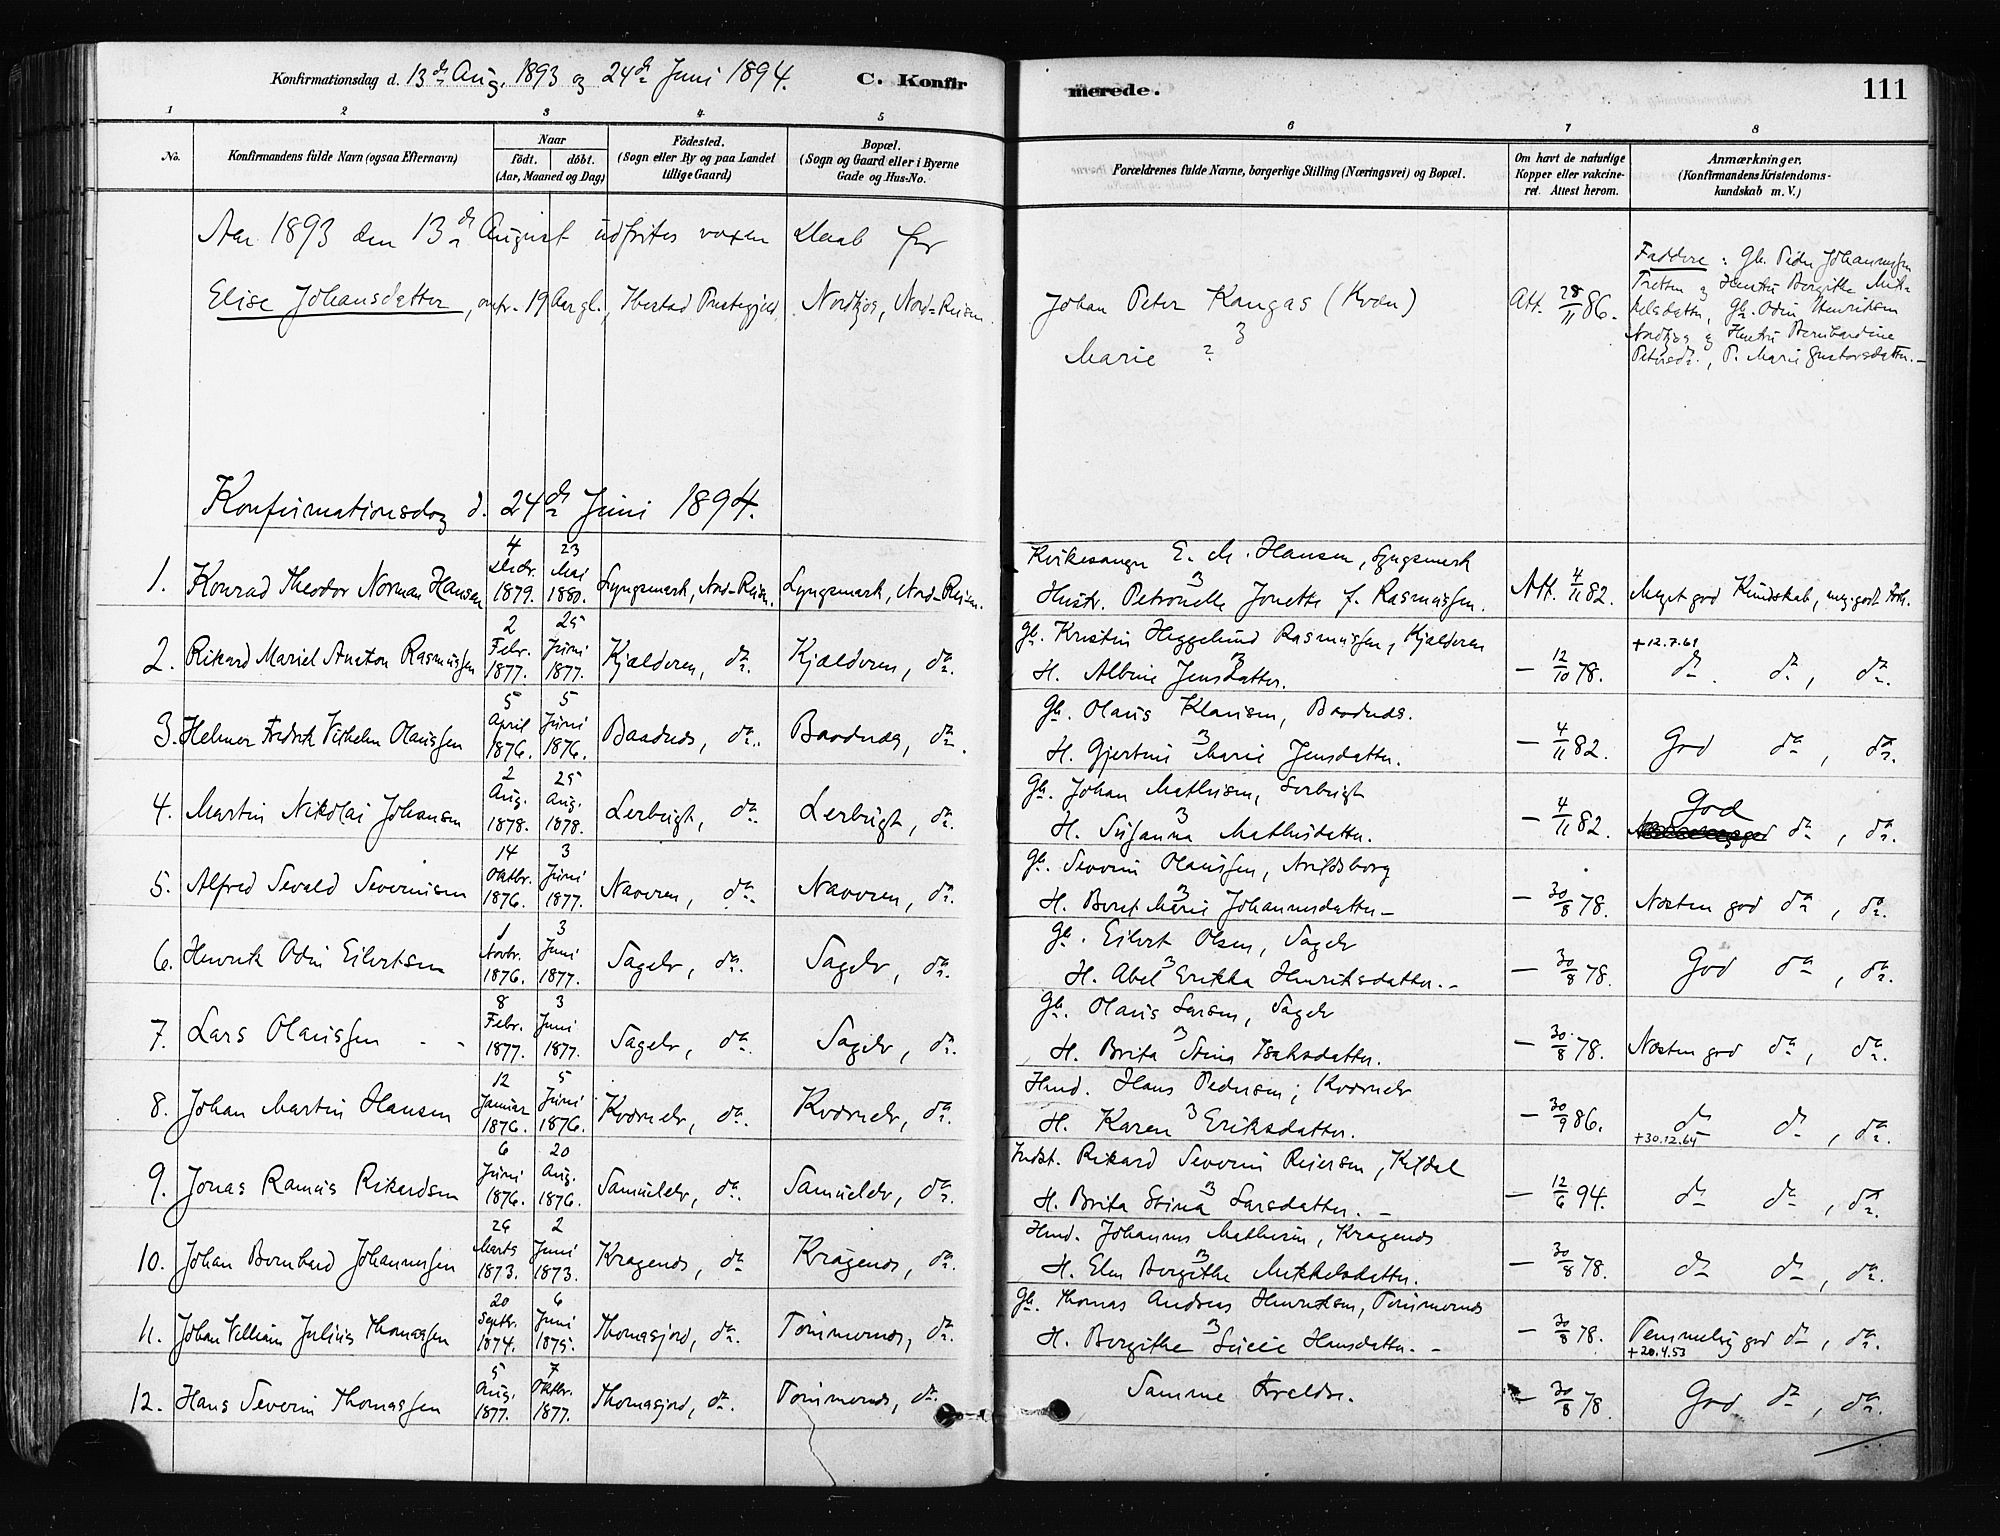 Konfirmationsdag d. 13de Aug. 1893 og 24de Juni 1894. C. Konfir
merede. 111
1 2 3 4 5 6 7 8
No. Konfirmandens fulde Navn (ogsaa Efternavn)
Naar
födt. döbt.
(Aar, Maaned og Dag)
Födested.
(Sogn eller By og paa Landet
tillige Gaard)
Bopæl.
(Sogn og Gaard eller i Byerne
Gade og Hus-No.
Forældrenes fulde Navne, borgerlige Stilling (Næringsvei) og Bopæl.
Om havt de naturlige
Kopper eller vakcine-
ret. Attest herom.
Anmærkninger.
(Konfirmandens Kristendoms-
kundskab m. V.)
Aar 1893 den 13de August voxen Daab for
Elise Johansdatter, 19 Aar gl., Ibestad Præstegjeld, Nordkjos, Nord-Reisen.
Johan Peter Kangas (Kvæn)
3
Marie ?
Att. 28/11 86.
Faddere: Gb. Peder Johannessen
Tretten og Hustru Bergithe Mik-
kelsdatter, Gb. Odin Henriksen
Nordkjos og Hustru Bernhardine
Petersdr., P. Marie Gustavsdatter.
Konfirmationsdag d. 24de Juni 1894.
1. Konrad Theodor Norman Hansen 4 Decbr. 1879. 23 Mai 1880. Lyngsmark, Nord-Reisen. Lyngsmark, Nord-Reisen. Kirkesanger E. M. Hansen, Lyngsmark
3
Hustr. Petronelle Jonette f. Rasmussen. Att. 4/11 82. Meget god Kundskab, meg. godt Forh.
2. Rikard Mariel Aneton Rasmussen 2 Febr. 1877. 25 Juni 1877. Kjælderen, do. Kjælderen, do. Gb. Kristin Heggelund Rasmussen, Kjælderen
3
H. Albine Jensdatter. — 12/10 78. +12.7.61 do. do, do.
3. Helmer Fredrik Vilhelm Olaussen 5 April 1876. 5 Juni 1876. Baadnes, do. Baadnes, do. Gb. Olaus Klausen, Baadnes.
3
H. Gjertine Marie Jensdatter. — 4/11 82. God do, do.
4. Martin Nikolai Johansen 2 Aug. 1878. 25 Aug. 1878. Lerbugt, do. Lerbugt, do. Gb. Johan Mathisen, Lerbugt
3
H. Susanna Mathisdatter. — 4/11 82. God do, do.
5. Alfred Sevald Severinsen 14 Oktbr. 1876. 3 Juni 1877. Navren, do. Navren, do. Gb. Severin Olaussen, Arildsborg
3
H. Beret Marie Johannesdatter — 30/8 78. Næsten god do, do.
6. Henrik Odin Eilertsen 1 Novbr. 1876. 3 Juni 1877. Sagelv, do. Sagelv, do. Gb. Eilert Olsen, Sagelv
3
H. Abel Erikka Henriksdatter. — 30/8 78. God do, do.
7. Lars Olaussen 8 Febr. 1877. 3 Juni 1877. Sagelv, do. Sagelv, do. Gb. Olaus Larsen, Sagelv
3
H. Brita Stina Isaksdatter. — 30/8 78. Næsten god do, do.
8. Johan Martin Hansen 12 Januar 1876. 5 Juni 1876. Kvænelv, do. Kvænelv, do. Hmd. Hans Pedersen, Kvænelv
3
H. Karen Eriksdatter. — 30/9 86. do do, do.
+30.12.65
9. Jonas Ramus Rikardsen 6 Juni 1876. 20 Aug. 1876. Samuelelv, do. Samuelelv, do. Indst. Rikard Severin Reiersen, Kildal
3
H. Brita Stina Larsdatter. — 12/6 94. do do, do.
10. Johan Bernhard Johannessen 26 Marts 1873. 2 Juni 1873. Kragenes, do. Kragenes, do. Hmd. Johannes Mathisen, Kragenes
3
H. Elen Bergithe Mikkelsdatter. — 30/8 78. do do, do.
11. Johan Villiam Julius Thomassen 20 Septbr. 1874. 6 Juni 1875. Thomasjord, do. Tömmernes, do. Gb. Thomas Andreas Henriksen, Tömmernes
3
H. Bergithe Lucie Hansdatter. — 30/8 78. Temmelig god do, do.
+20.4.53
12. Hans Severin Thomassen 5 Aug. 1877. 7 Oktbr. 1877. Thomasjord, do. Tömmernes, do. Samme Foreldre. — 30/8 78. God do, do.